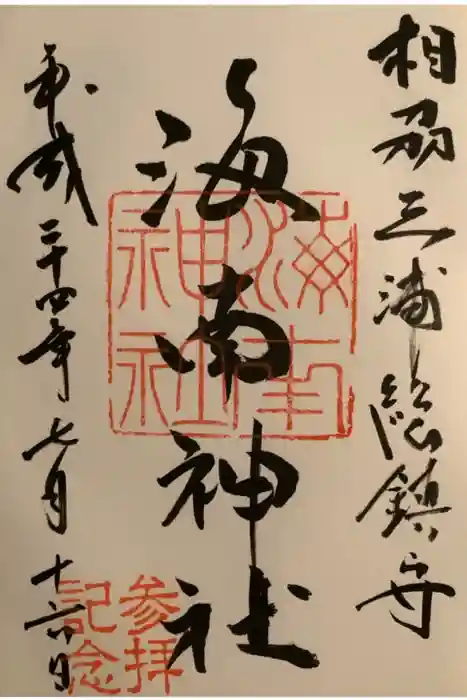 相刕三浦総鎮守
海南神社
海南
神社
平成二十四年七月十六日
参拝
記念